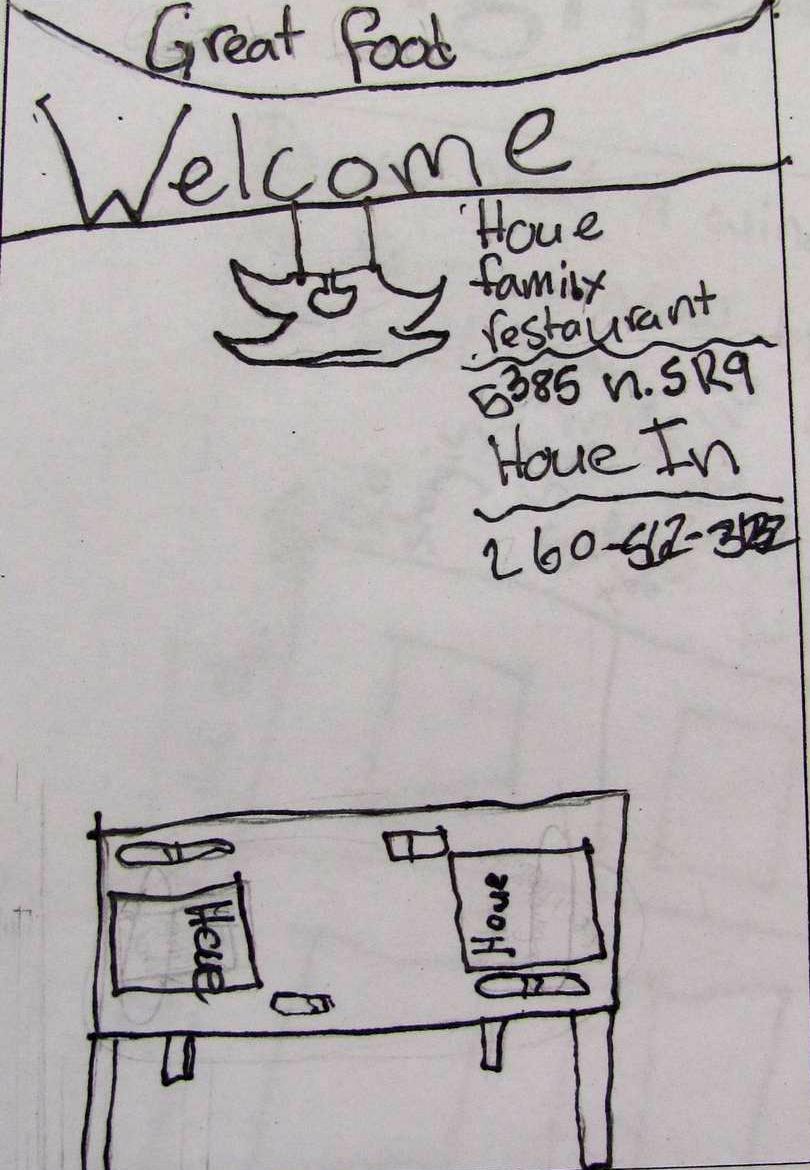 Great food
Welcome
Houe
family
restaurant
5385 n. SR9
Houe In
260-562-
Houe
Houe